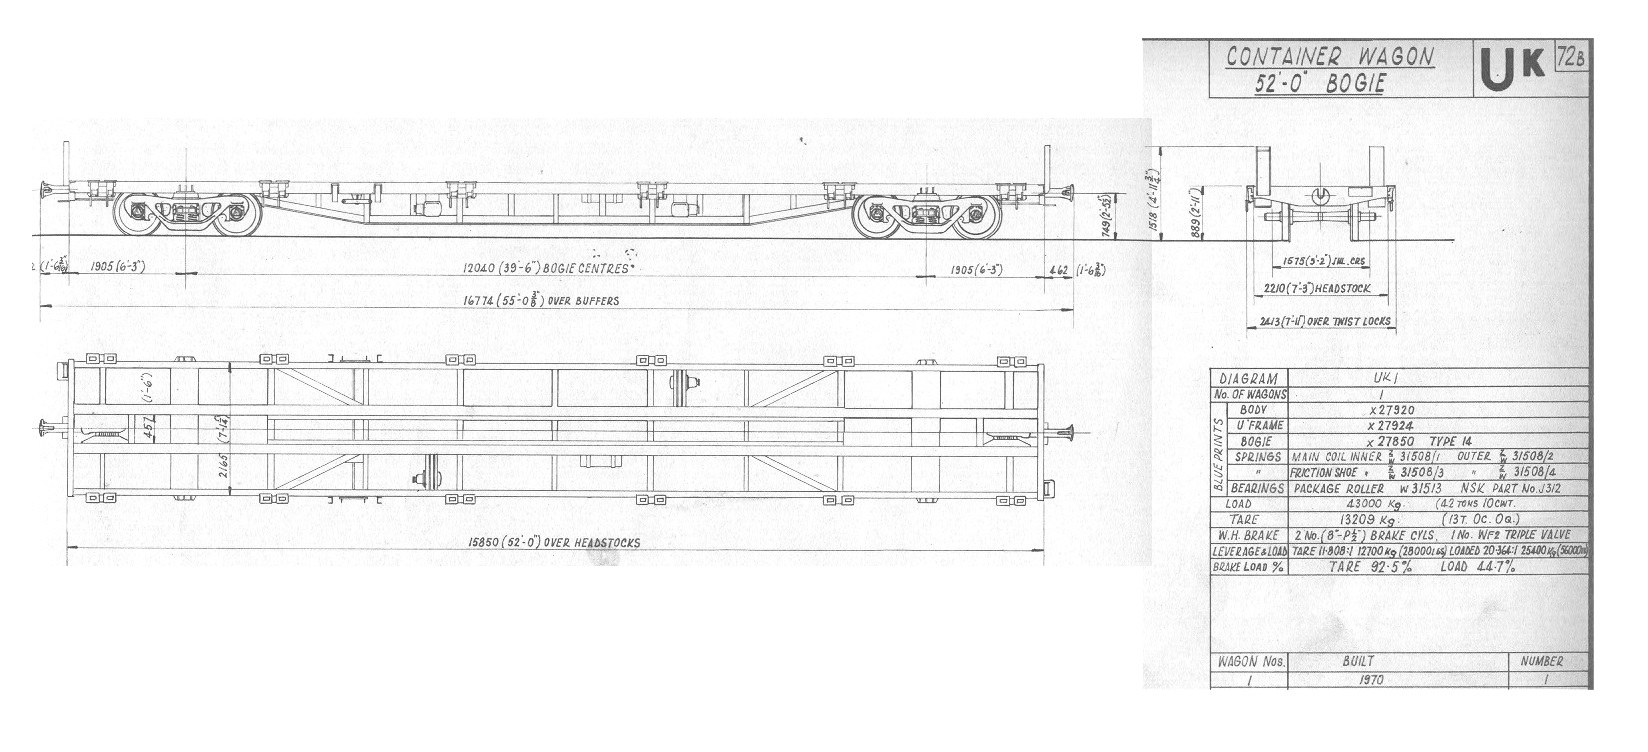 CONTAINER WAGON
52'-0" BOGIE
UK
72B
(1'-6 3/16)
1905 (6'-3")
12040 (39'-6") BOGIE CENTRES
1905 (6'-3")
462 (1'-6 3/16)
16774 (55'-0 3/8) OVER BUFFERS
749 (2'-5½)
1518 (4'-11¾)
889 (2'-11")
1575 (5'-2") JNL. CRS
2210 (7'-3") HEADSTOCK
2413 (7'-11") OVER TWIST LOCKS
457 (1'-6")
2165 (7'-1¼)
15850 (52'-0") OVER HEADSTOCKS
DIAGRAM UK1
No. OF WAGONS 1
BLUE PRINTS
BODY X 27920
U'FRAME X 27924
BOGIE X 27850 TYPE 14
SPRINGS MAIN COIL INNER Z/W 31508/1 OUTER Z/W 31508/2
" FRICTION SHOE " Z/W 31508/3 " Z/W 31508/4
BEARINGS PACKAGE ROLLER W 31513 NSK PART No. J312
LOAD 43000 Kg. (42 TONS 10CWT.
TARE 13209 Kg. (13T. 0C. 0Q.)
W.H. BRAKE 2 No. (8"-P½") BRAKE CYLS. 1 No. WF2 TRIPLE VALVE
LEVERAGE & LOAD TARE 11·808:1 12700 Kg (28000 LBS) LOADED 20·364:1 25400 Kg (56000
BRAKE LOAD % TARE 92·5% LOAD 44·7%
WAGON Nos. BUILT NUMBER
1 1970 1